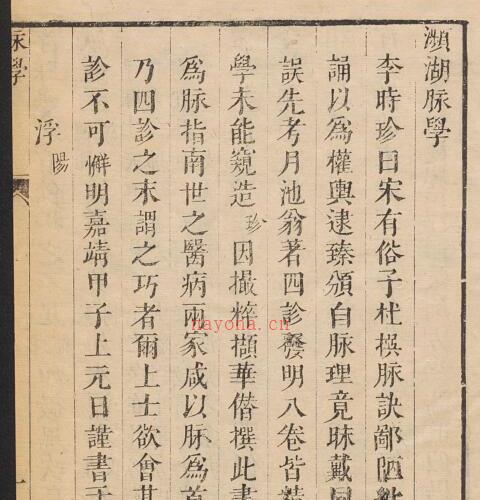 瀕湖脈學
李時珍曰宋有俗子杜撰脈訣鄙陋紕
誦以爲權輿逮臻頒白脈理竟昧戴同
誤先考月池翁著四診發明八卷皆精
學未能窺造珍因撮粹擷華僣撰此書
爲脈指南世之醫病兩家咸以脈爲首
乃四診之末謂之巧者爾上士欲會其
診不可懈明嘉靖甲子上元日謹書于
浮陽
脈學
一
nayona.cn